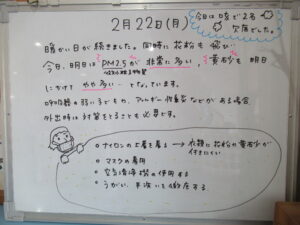 2月22日(月)
今日は咳で2名
欠席でした。
暖かい日が続きました。同時に花粉も飛び
今日、明日は PM2.5 が 非常に多い, 黄砂も 明日
にかけて やや多い となっています。
呼吸器の弱い子どもや、アレルギー
などがある場合
外出時は対策をとることも必要です。
○ ナイロンの上着を着る → 衣類に花粉や黄砂が
付きにくい
○ マスクの着用
○ 空気清浄機の使用する
○ うがい、手洗いを徹底する